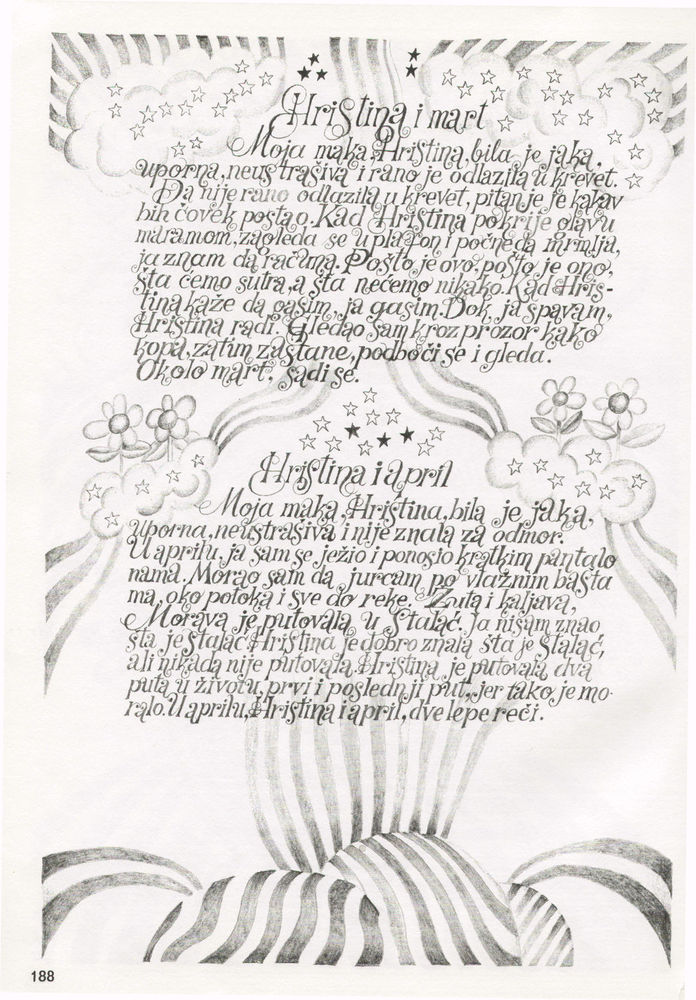 Hristina i mart
Moja majka, Hristina, bila je jaka,
uporna, neustrašiva i rano je odlazila u krevet.
Da nije rano odlazila u krevet, pitanje je kakav
bih čovek postao. Kad Hristina pokrije glavu
maramom, zagleda se u plafon i počne da mrmlja,
ja znam da računa. Pošto je ovo, pošto je ono,
šta ćemo sutra, a šta nećemo nikako. Kad Hris-
tina kaže da gasim, ja gasim. Dok ja spavam,
Hristina radi. Gledao sam kroz prozor kako
kopa, zatim zastane, podboči se i gleda.
Okolo mart, sadi se.
Hristina i april
Moja majka, Hristina, bila je jaka,
uporna, neustrašiva i nije znala za odmor.
U aprilu, ja sam se ježio i ponosio kratkim pantalo
nama. Morao sam da jurcam po vlažnim bašta
ma, oko potoka i sve do reke. Žuta i kaljava,
Morava je putovala u Stalać. Ja nisam znao
šta je Stalać. Hristina je dobro znala šta je Stalać,
ali nikada nije putovala. Hristina je putovala dva
puta u životu, prvi i poslednji put, jer tako je mo-
ralo. U aprilu, Hristina i april, dve lepe reči.
188